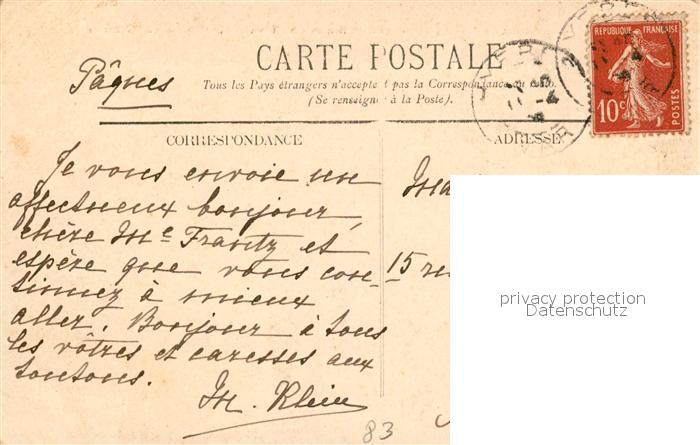 CARTE POSTALE
Pâques
Tous les Pays étrangers n'acceptent pas la Correspondance au
(Se renseigner à la Poste).
REPUBLIQUE FRANÇAISE
10c
POSTES
CORRESPONDANCE
ADRESSE
Je vous envoie un
affectueux bonjour,
chère Me Frantz et
espère que vous con-
tinuez à mieux
aller. Bonjour à tous
les vôtres et caresses aux
toutous.
M. Klein
15 ru
83
privacy protection
Datenschutz